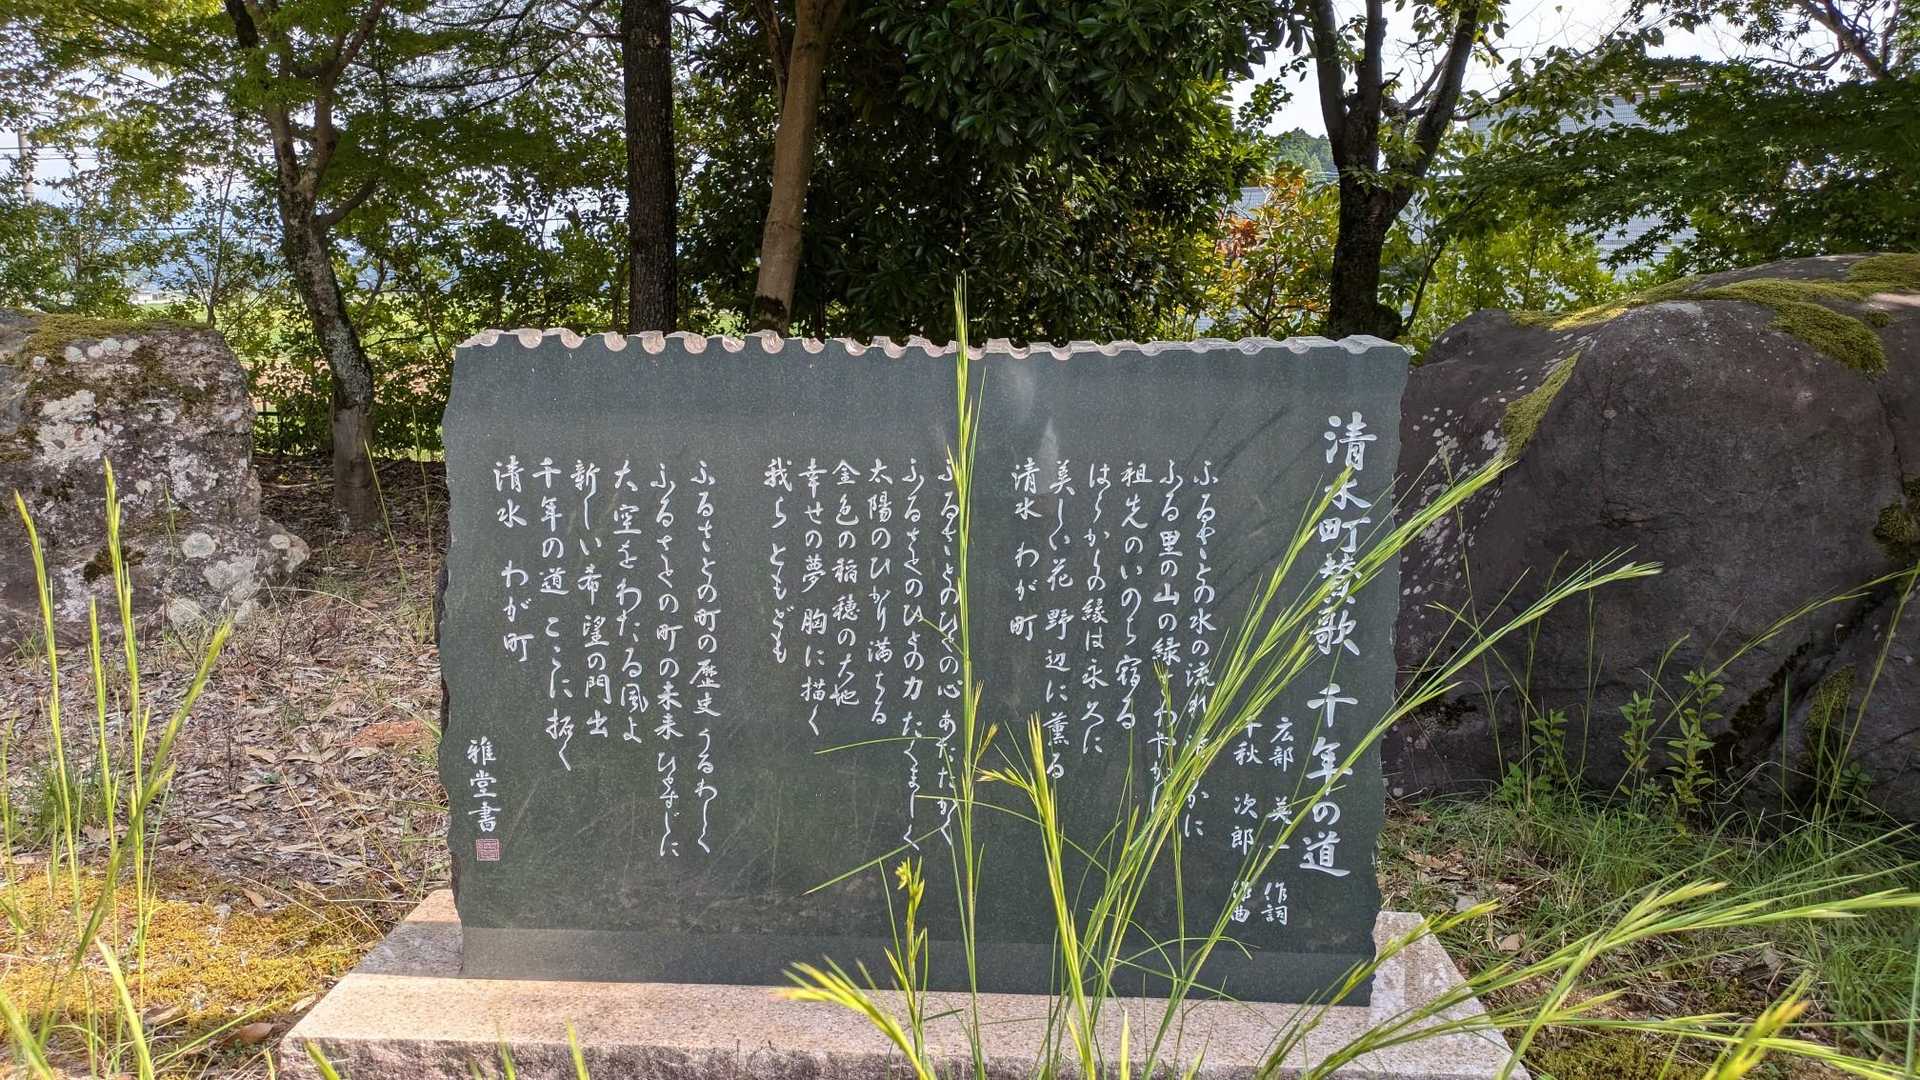 清水町賛歌 千年の道
広部 英一 作詞
千秋 次郎 作曲
ふるさとの水の流れ かに
ふる里の山の緑 わやかに
祖先のいのち宿る
はらからの縁は永久に
美しい花 野辺に薫る
清水 わが町
ふるさとのひとの心 あたたかく
ふるさとのひとの力 たくましく
太陽のひかり満ちる
金色の稲穂の大地
幸せの夢 胸に描く
我ら ともども
ふるさとの町の歴史 うるわしく
ふるさとの町の未来 ひとすじに
大空をわたる風よ
新しい希望の門出
千年の道 ここに拓く
清水 わが町
雅堂書